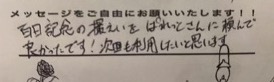 メッセージをご自由にお願いいたします!!
百日記念の撮影をぱれっとさんに頼んで
良かったです!次回も利用したいと思います